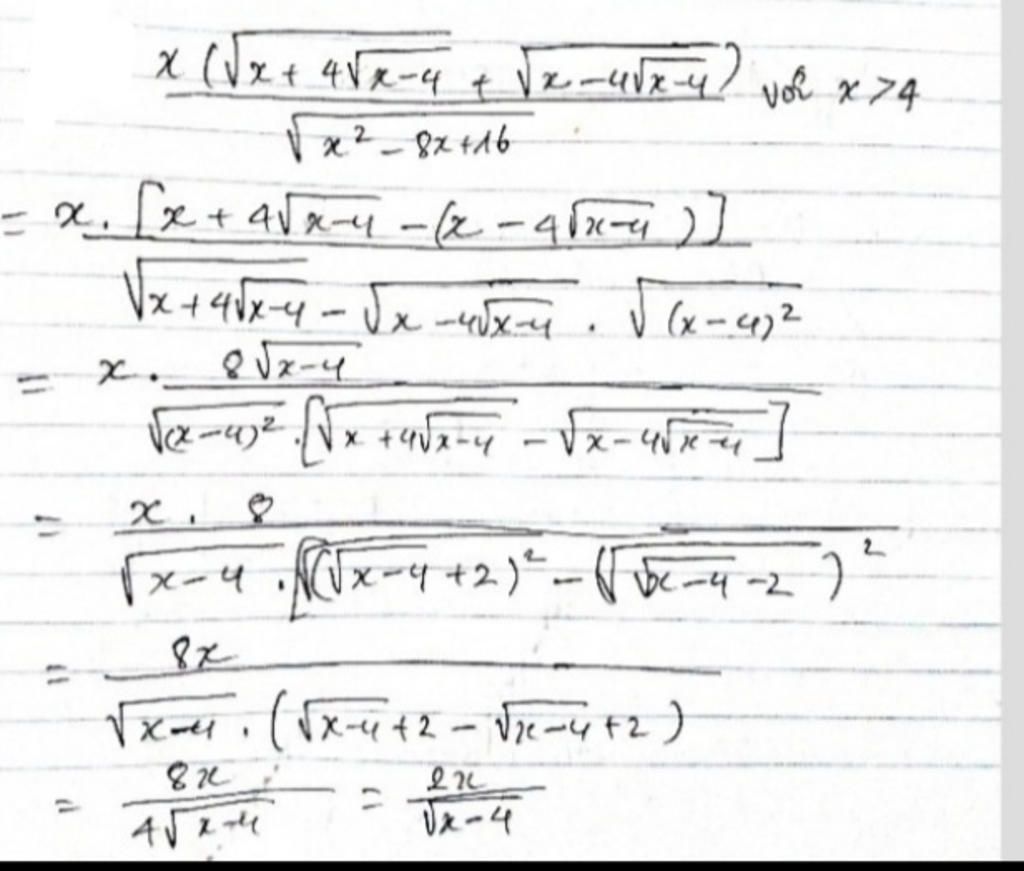 x(√(x + 4√(x-4)) + √(x - 4√(x-4))) / √(x² - 8x + 16) với x > 4
= x.[x + 4√(x-4) - (x - 4√(x-4))] / √(x + 4√(x-4)) - √(x - 4√(x-4)) . √((x-4)²)
= x. 8√(x-4) / √((x-4)²).[√(x + 4√(x-4)) - √(x - 4√(x-4))]
= x. 8 / √(x-4).[√((√(x-4) + 2)²) - (√(√(x-4) - 2))²
= 8x / √(x-4).(√(x-4) + 2 - √(x-4) + 2)
= 8x / 4√(x-4) = 2x / √(x-4)